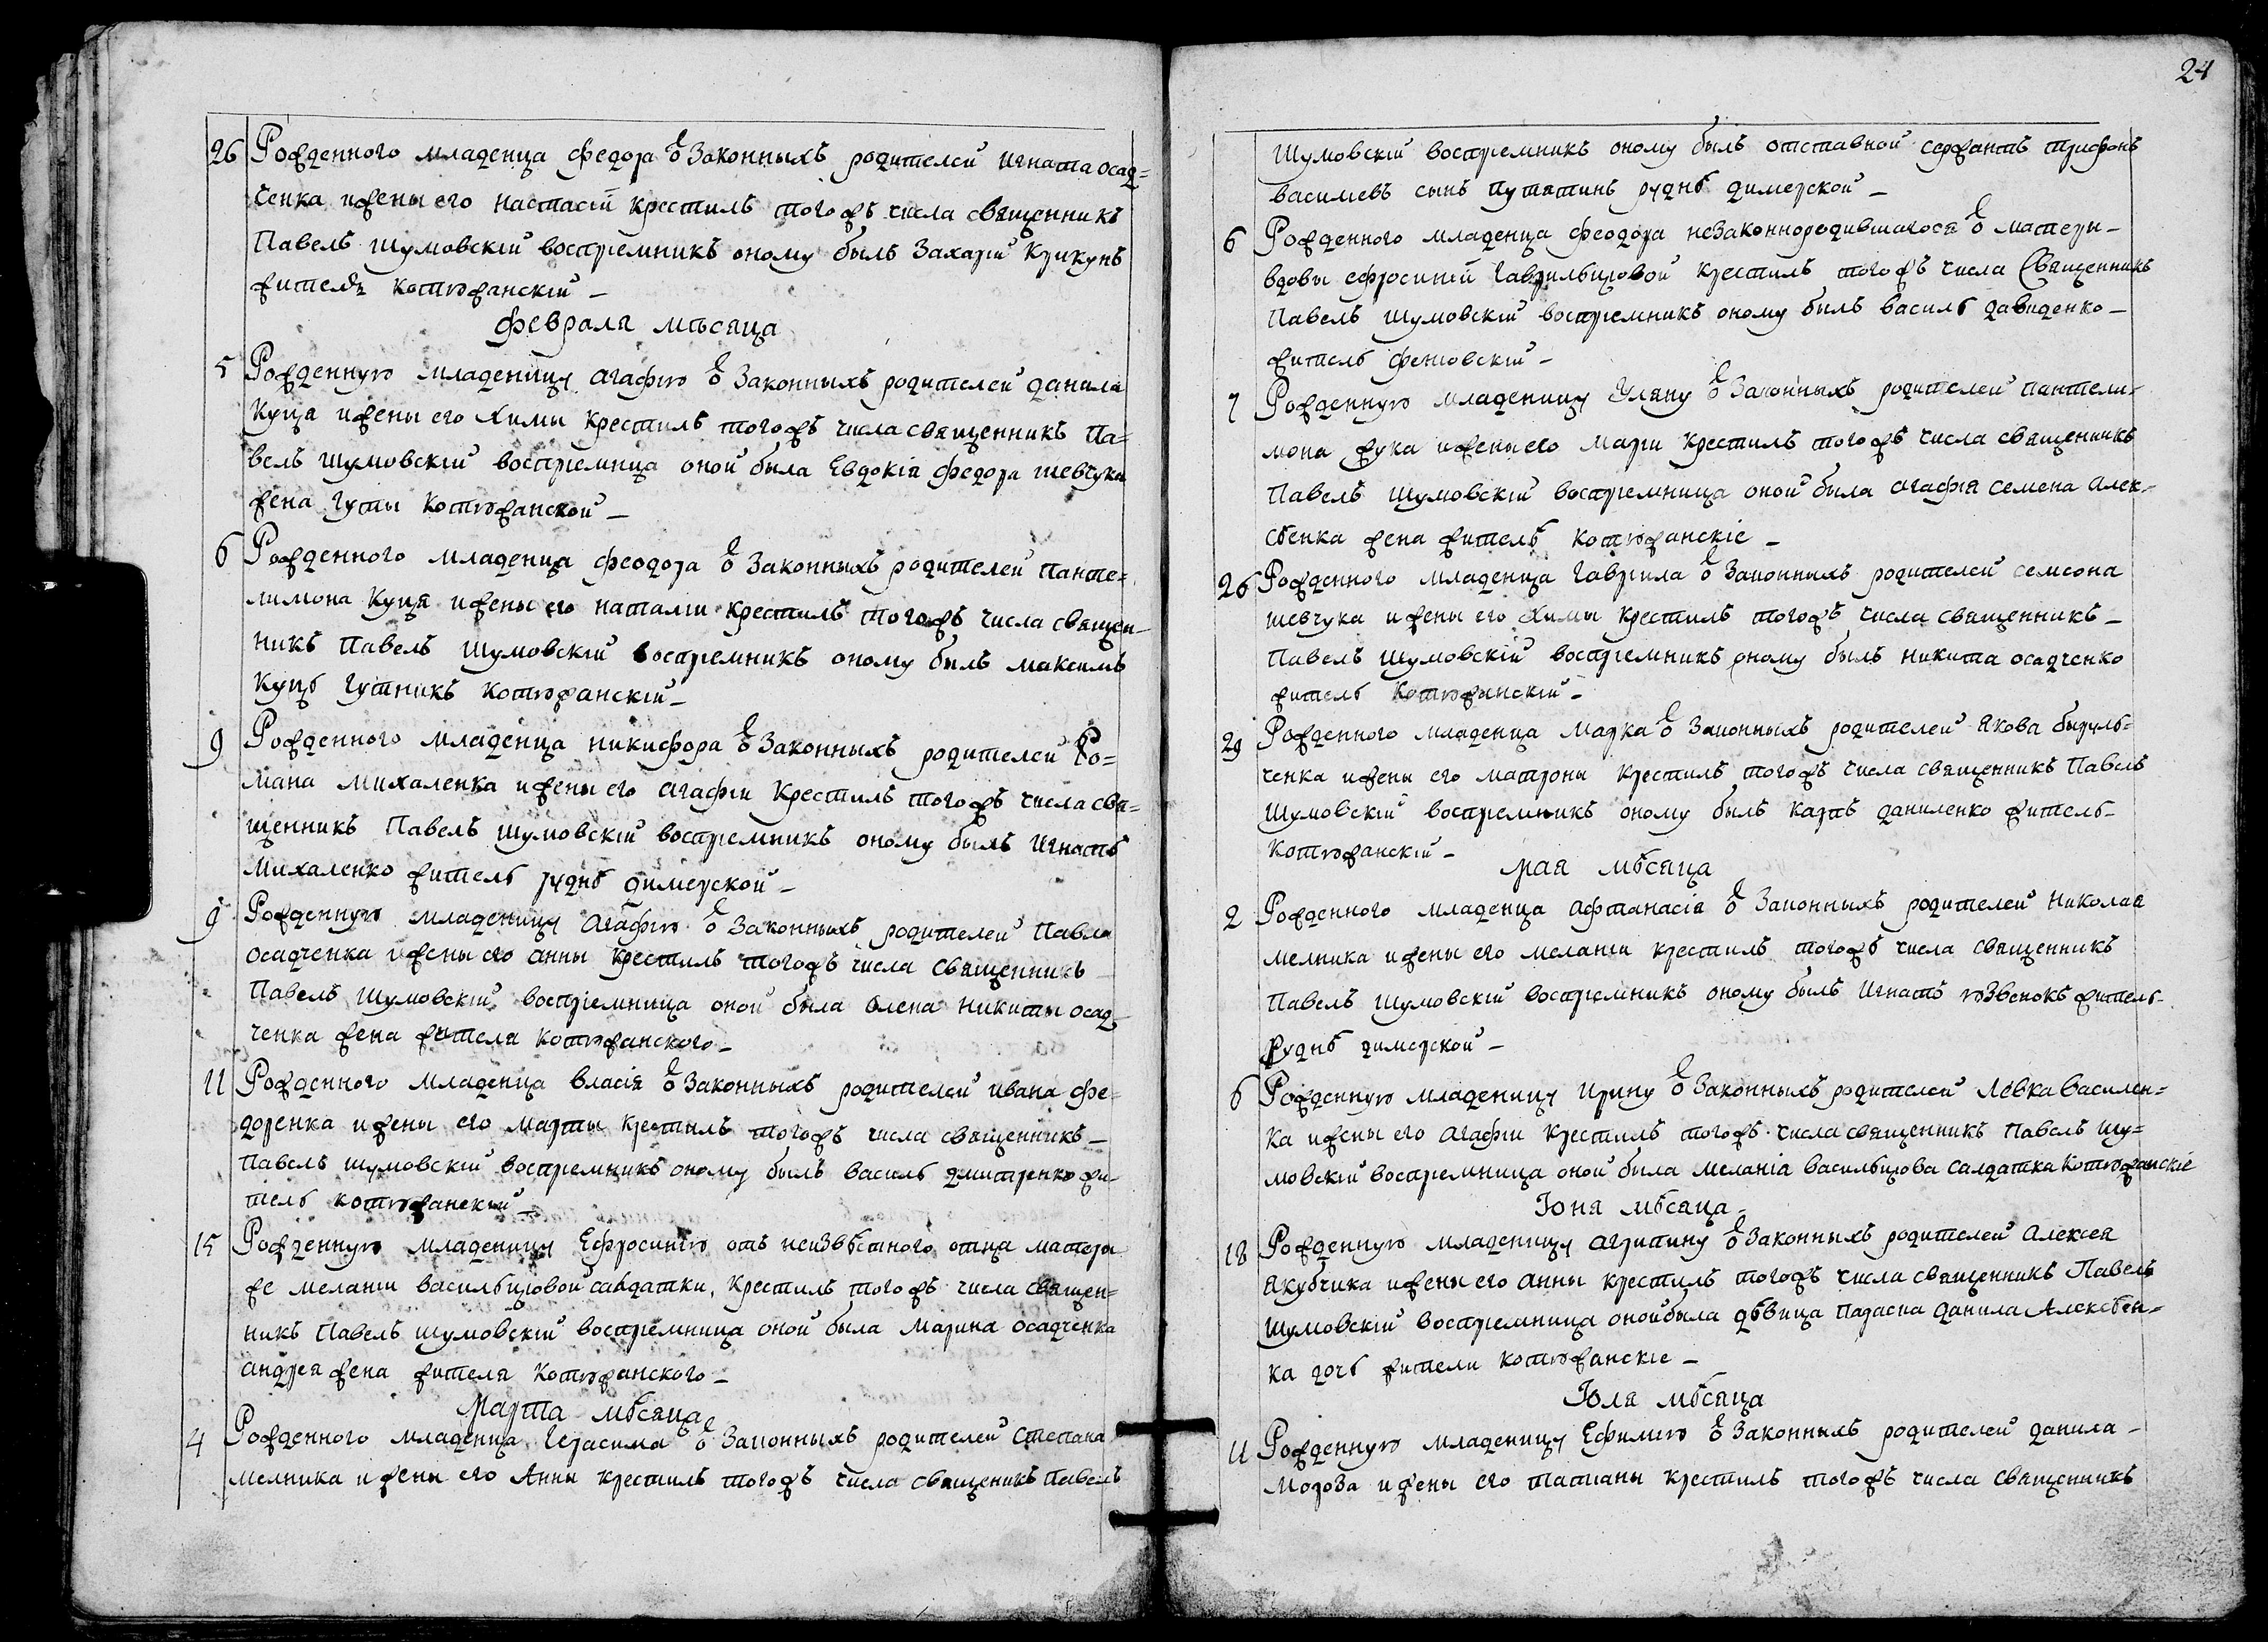 26 Рожденного младенца федора ѿ Законныхъ родителей игната осад=
ченка ижены его настасіи крестилъ тогожъ числа священникъ
Павелъ шумовскій воспріемникъ оному былъ Захарій Крикунъ
житель котюжанскій –
февраля мѣсяца
5 Рожденную младеницу агафію ѿ Законныхъ родителей данила
куця ижены его Химы крестилъ тогожъ числа священникъ Па=
велъ шумовскій воспріемница оной была Евдокія федора шевчука
жена гуты котюжанской –
6 Рожденного младенца феодора ѿ Законныхъ родителей Панте=
лимона куця ижены его наталіи крестилъ тогожъ числа священ–
никъ Павелъ шумовскій воспріемникъ оному былъ максимъ
куць гутникъ котюжанскій –
9 Рожденного младенца никифора ѿ Законныхъ родителей Ро=
мана михаленка ижены его агафіи крестилъ тогожъ числа свя=
щенникъ Павелъ шумовскій воспріемникъ оному былъ игнатъ
михаленко житель руднѣ димерской –
9 Рожденную младеницу агафію ѿ Законныхъ родителей Павла
осадченка ижены его анны крестилъ тогожъ числа священникъ
Павелъ шумовскій воспріемница оной была олена никиты осад
ченка жена жителя котюжанского –
11 Рожденного младенца власія ѿ Законныхъ родителей ивана фе=
доренка ижены его марты крестилъ тогожъ числа священникъ –
Павелъ шумовскій воспріемникъ оному былъ василь дмитренко жи–
тель котюжанскій –
15 Рожденную младеницу Ефросинію отъ неизвѣстного отца матери
же меланіи васильцовой салдатки, крестилъ тогожъ числа священ=
никъ Павелъ шумовскій воспріемница оной была Марина осадченка
андрея жена жителя котюжанского –
марта мѣсяца
4 Рожденного младенца Герасима ѿ Законныхъ родителей степана
мелника ижены его Анны крестилъ тогожъ числа священикъ Павелъ
24
Шумовскій воспріемникъ оному былъ отставной сержантъ трифонъ
василиевъ сынъ путятинъ руднѣ димерской –
6 Рожденного младенца феодора незаконнородившагося ѿ матери –
вдовы ефросиніи крестилъ тогожъ числа Священникъ
Павелъ шумовскій воспріемникъ оному былъ василь давиденко –
житель феневскій –
7 Рожденную младеницу Уляну ѿ Законныхъ родителей пантели–
мона жука ижены его маріи крестилъ тогожъ числа священникъ
Павелъ шумовскій воспріемница оной была агафія семена алек–
сѣенка жена житель котюжанскіе –
26 Рожденного младенца гавріила ѿ Законныхъ родителей семеона
шевчука ижены его Химы крестилъ тогожъ числа священникъ –
Павелъ шумовскій воспріемникъ оному былъ никита осадченко
житель котюжанскій –
29 Рожденного младенца марка ѿ Законныхъ родителей якова бируль–
ченка ижены его матроны крестилъ тогожъ числа священникъ Павелъ
Шумовскій воспріемникъ оному былъ карпъ даниленко житель –
котюжанскій –
мая мѣсяца
2 Рожденного младенца афтанасія ѿ Законныхъ родителей николая
мелника ижены его меланіи крестилъ тогожъ числа священникъ
Павелъ шумовскій воспріемникъ оному былъ игнатъ юзвенокъ житель–
руднѣ димерской –
6 Рожденную младеницу ирину ѿ Законныхъ родителей левка василен=
ка ижены его агафіи крестилъ тогожъ числа священникъ Павелъ шу=
мовскій воспріемница оной была меланія васильцова салдатка котюжанскіе
Іюня мѣсяца
18 Рожденную младеницу агрипину ѿ Законныхъ родителей алексея
якубчика ижены его анны крестилъ тогожъ числа священникъ Павелъ
шумовскій воспріемница оной была дѣвица параска данила Алексѣен=
ка дочь жители котюжанскіе –
Іюля мѣсяца
11 Рожденную младеницу Ефимію ѿ Законныхъ родителей данила –
мороза ижены его татианы крестилъ тогожъ числа священникъ